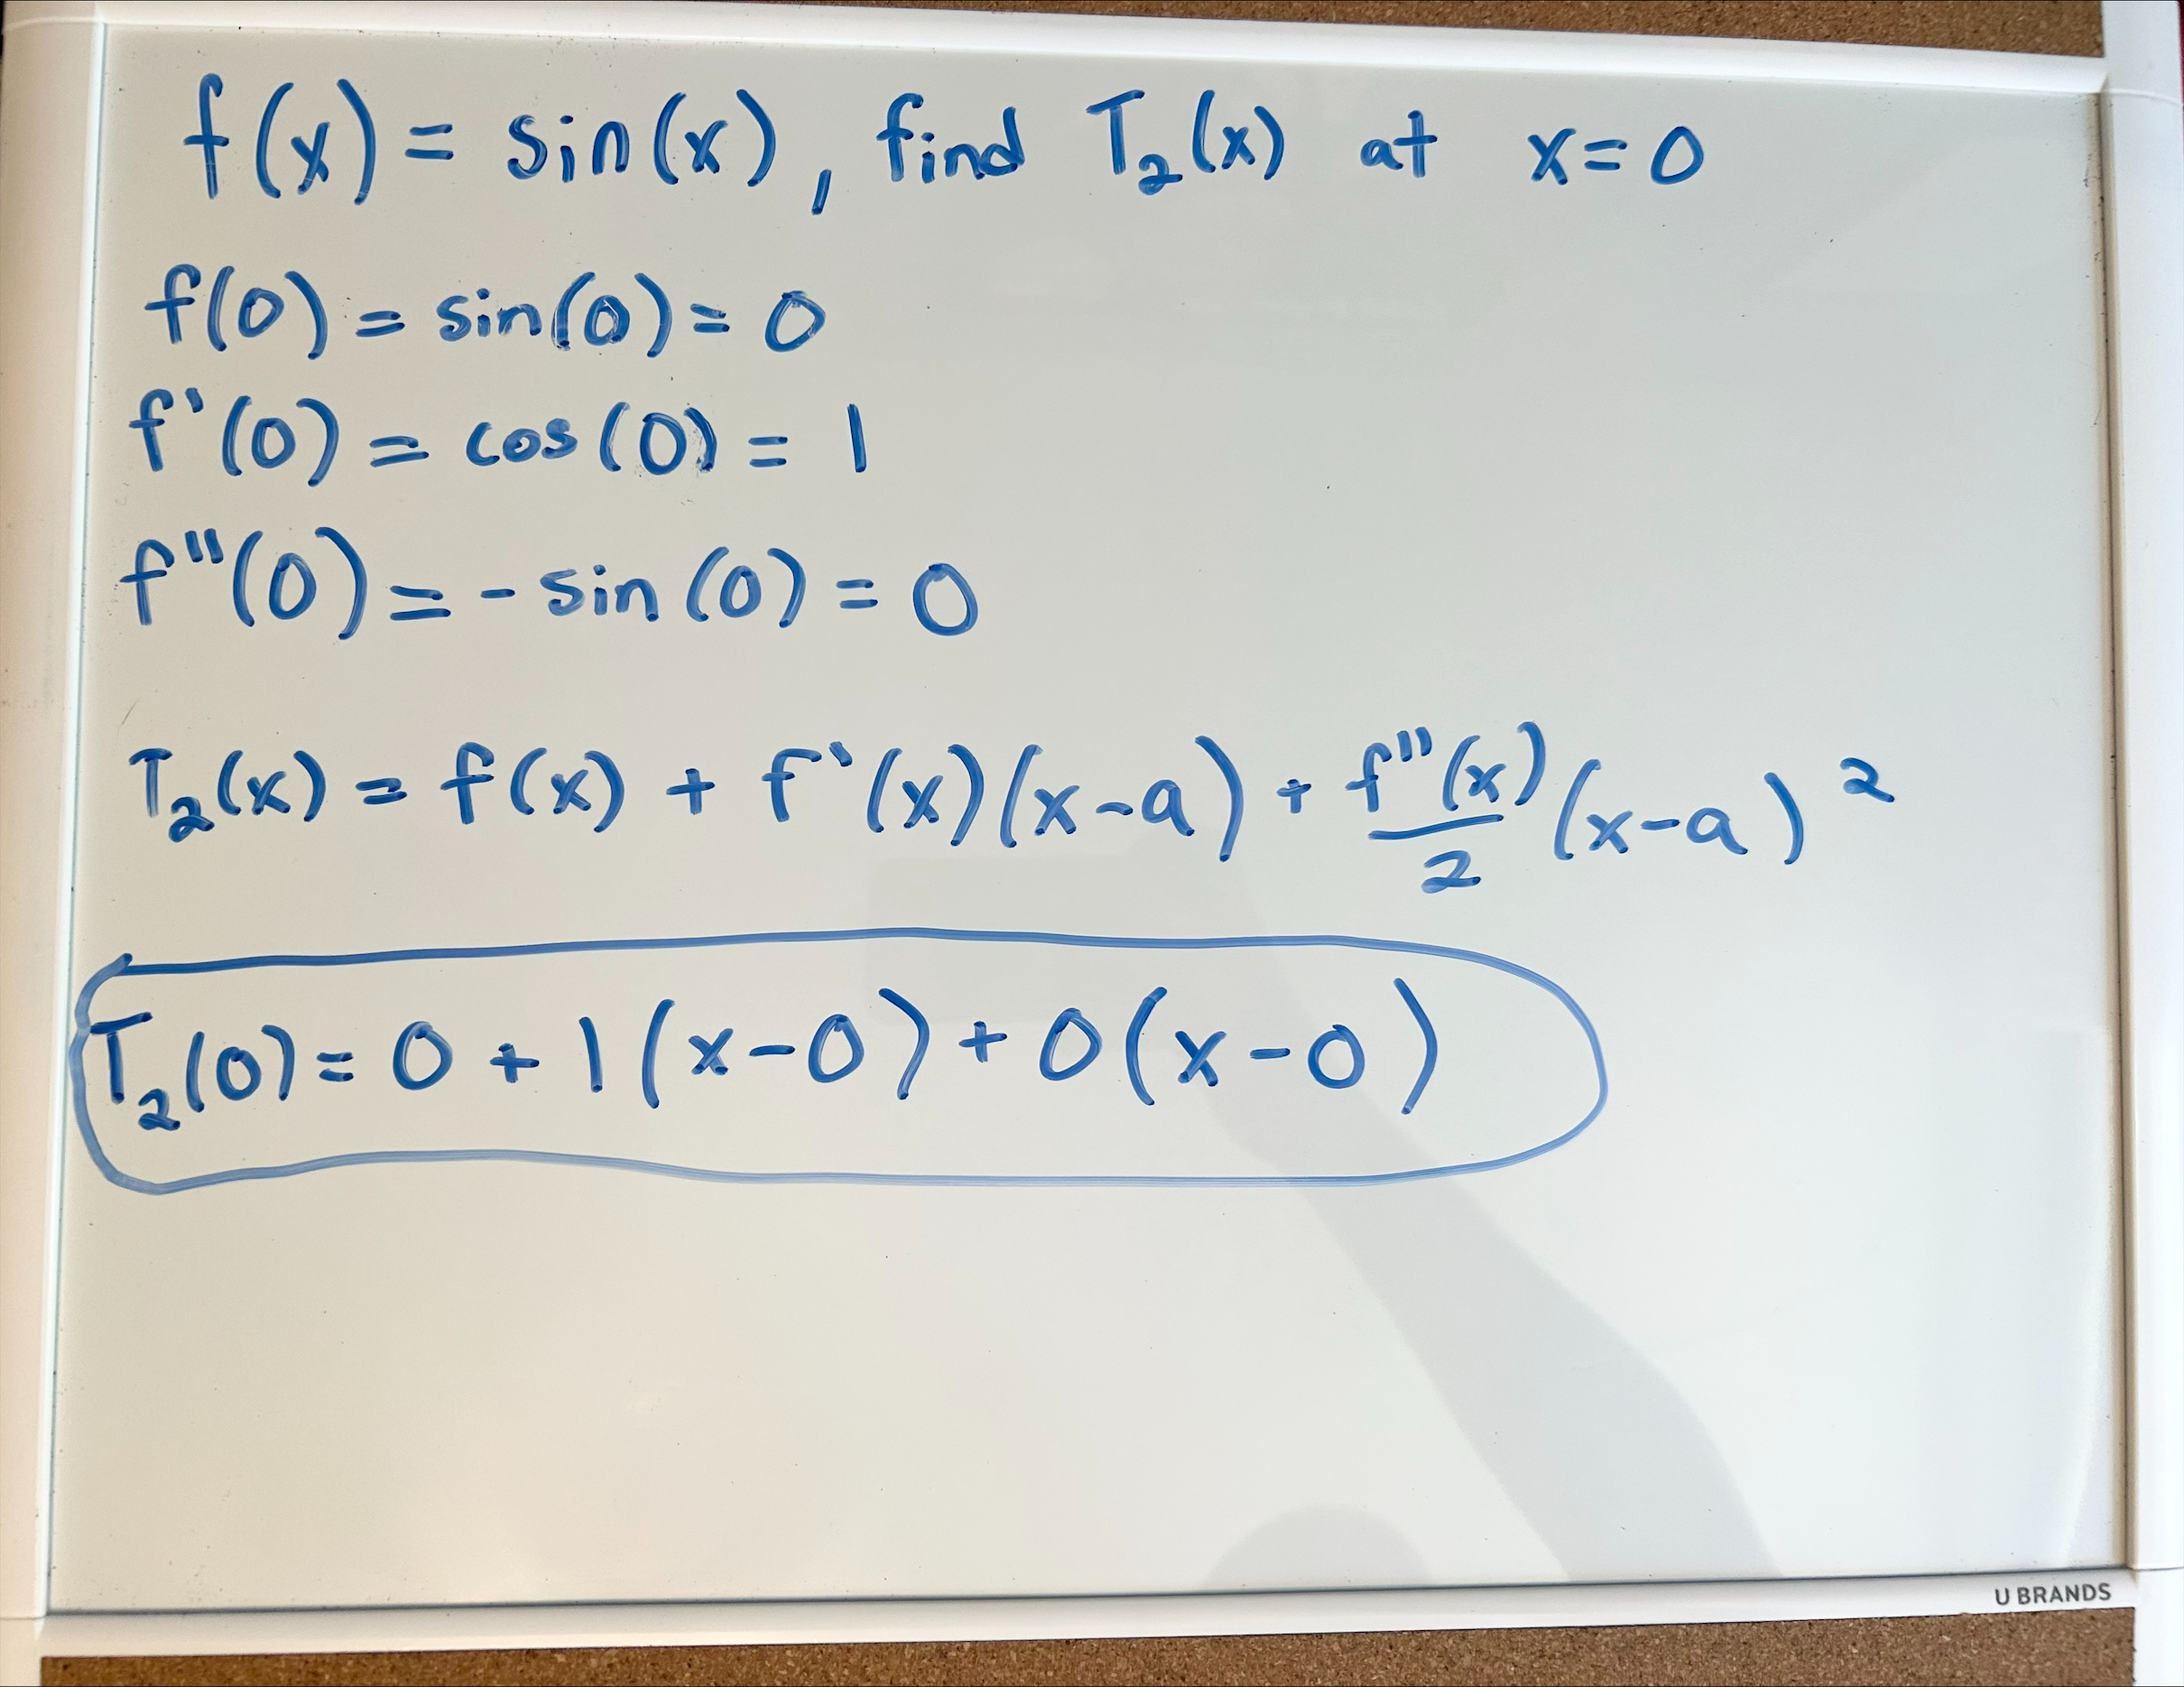 f(x) = sin(x), find T₂(x) at x=0
f(0) = sin(0) = 0
f'(0) = cos(0) = 1
f"(0) = - sin(0) = 0
T₂(x) = f(x) + f'(x)(x-a) + f"(x)/2 (x-a)²
T₂(0) = 0 + 1(x-0) + 0(x-0)
U BRANDS